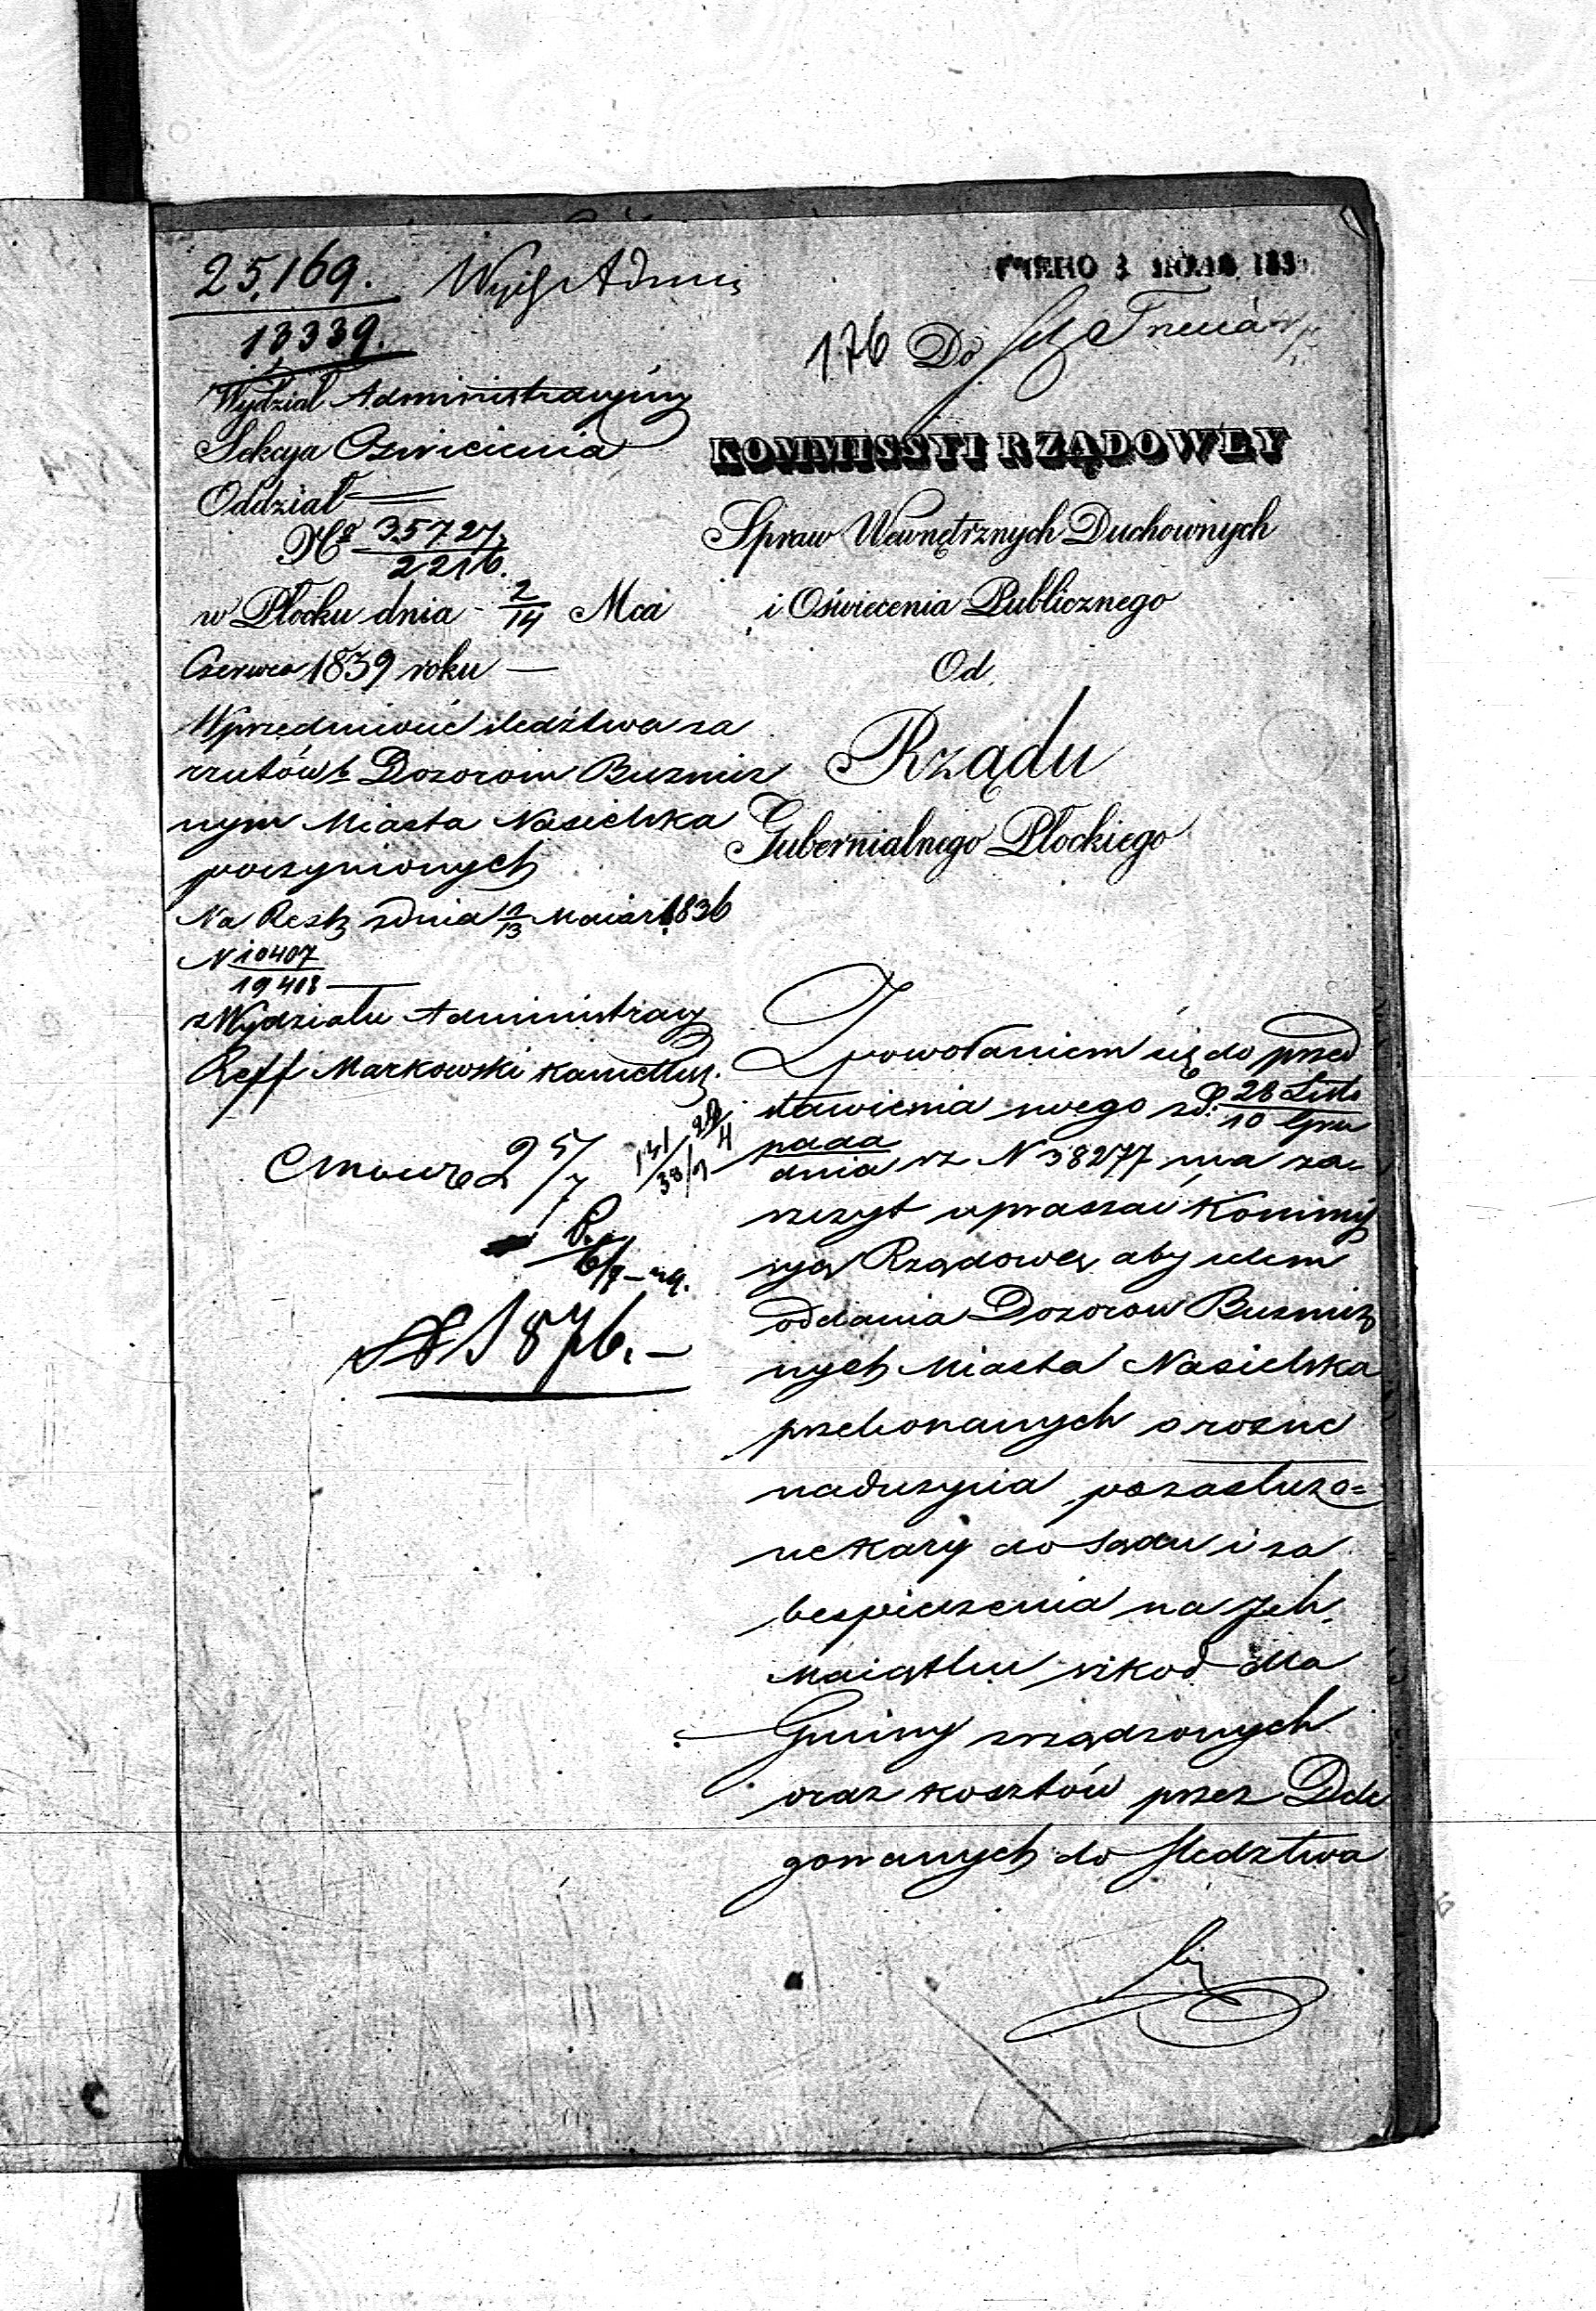 25,169.
13339.
176 Do
Wydział Administracyiny
Sekcya Oswiecenia
Oddział
No 35727.
2216.
w Płocku dnia 2/14 Mca
Czerwca 1839 roku
W przedmiocie sledźtwa za
rzutów Dozorom Bużnicz
nym Miasta Nasielska
poczynionych
Na Resk z dnia 1/13 Maia r. 1836
N 10407
19418
z Wydziału Administracy
Reff Markowski
25/7
No 1876.
KOMMISSYI RZĄDOWEY
Spraw Wewnętrznych Duchownych
i Oświecenia Publicznego
Od
Rządu
Gubernialnego Płockiego
Z powołaniem się do przed
stawienia swego z d. 28 Listo
pada 10 Gru
dnia rz N 38277 ma za-
szczyt upraszać Kommis
syą Rządową aby celem
oddania Dozorow Bużnicz
nych Miasta Nasielska
przekonanych o rozne
nadużycia po zasłużo=
ne kary do Sądu i za
bespieczenia na Jch
Maiątku szkod dla
Gminy zrządzonych
oraz kosztów przez Dele
gowanych do sledztwa